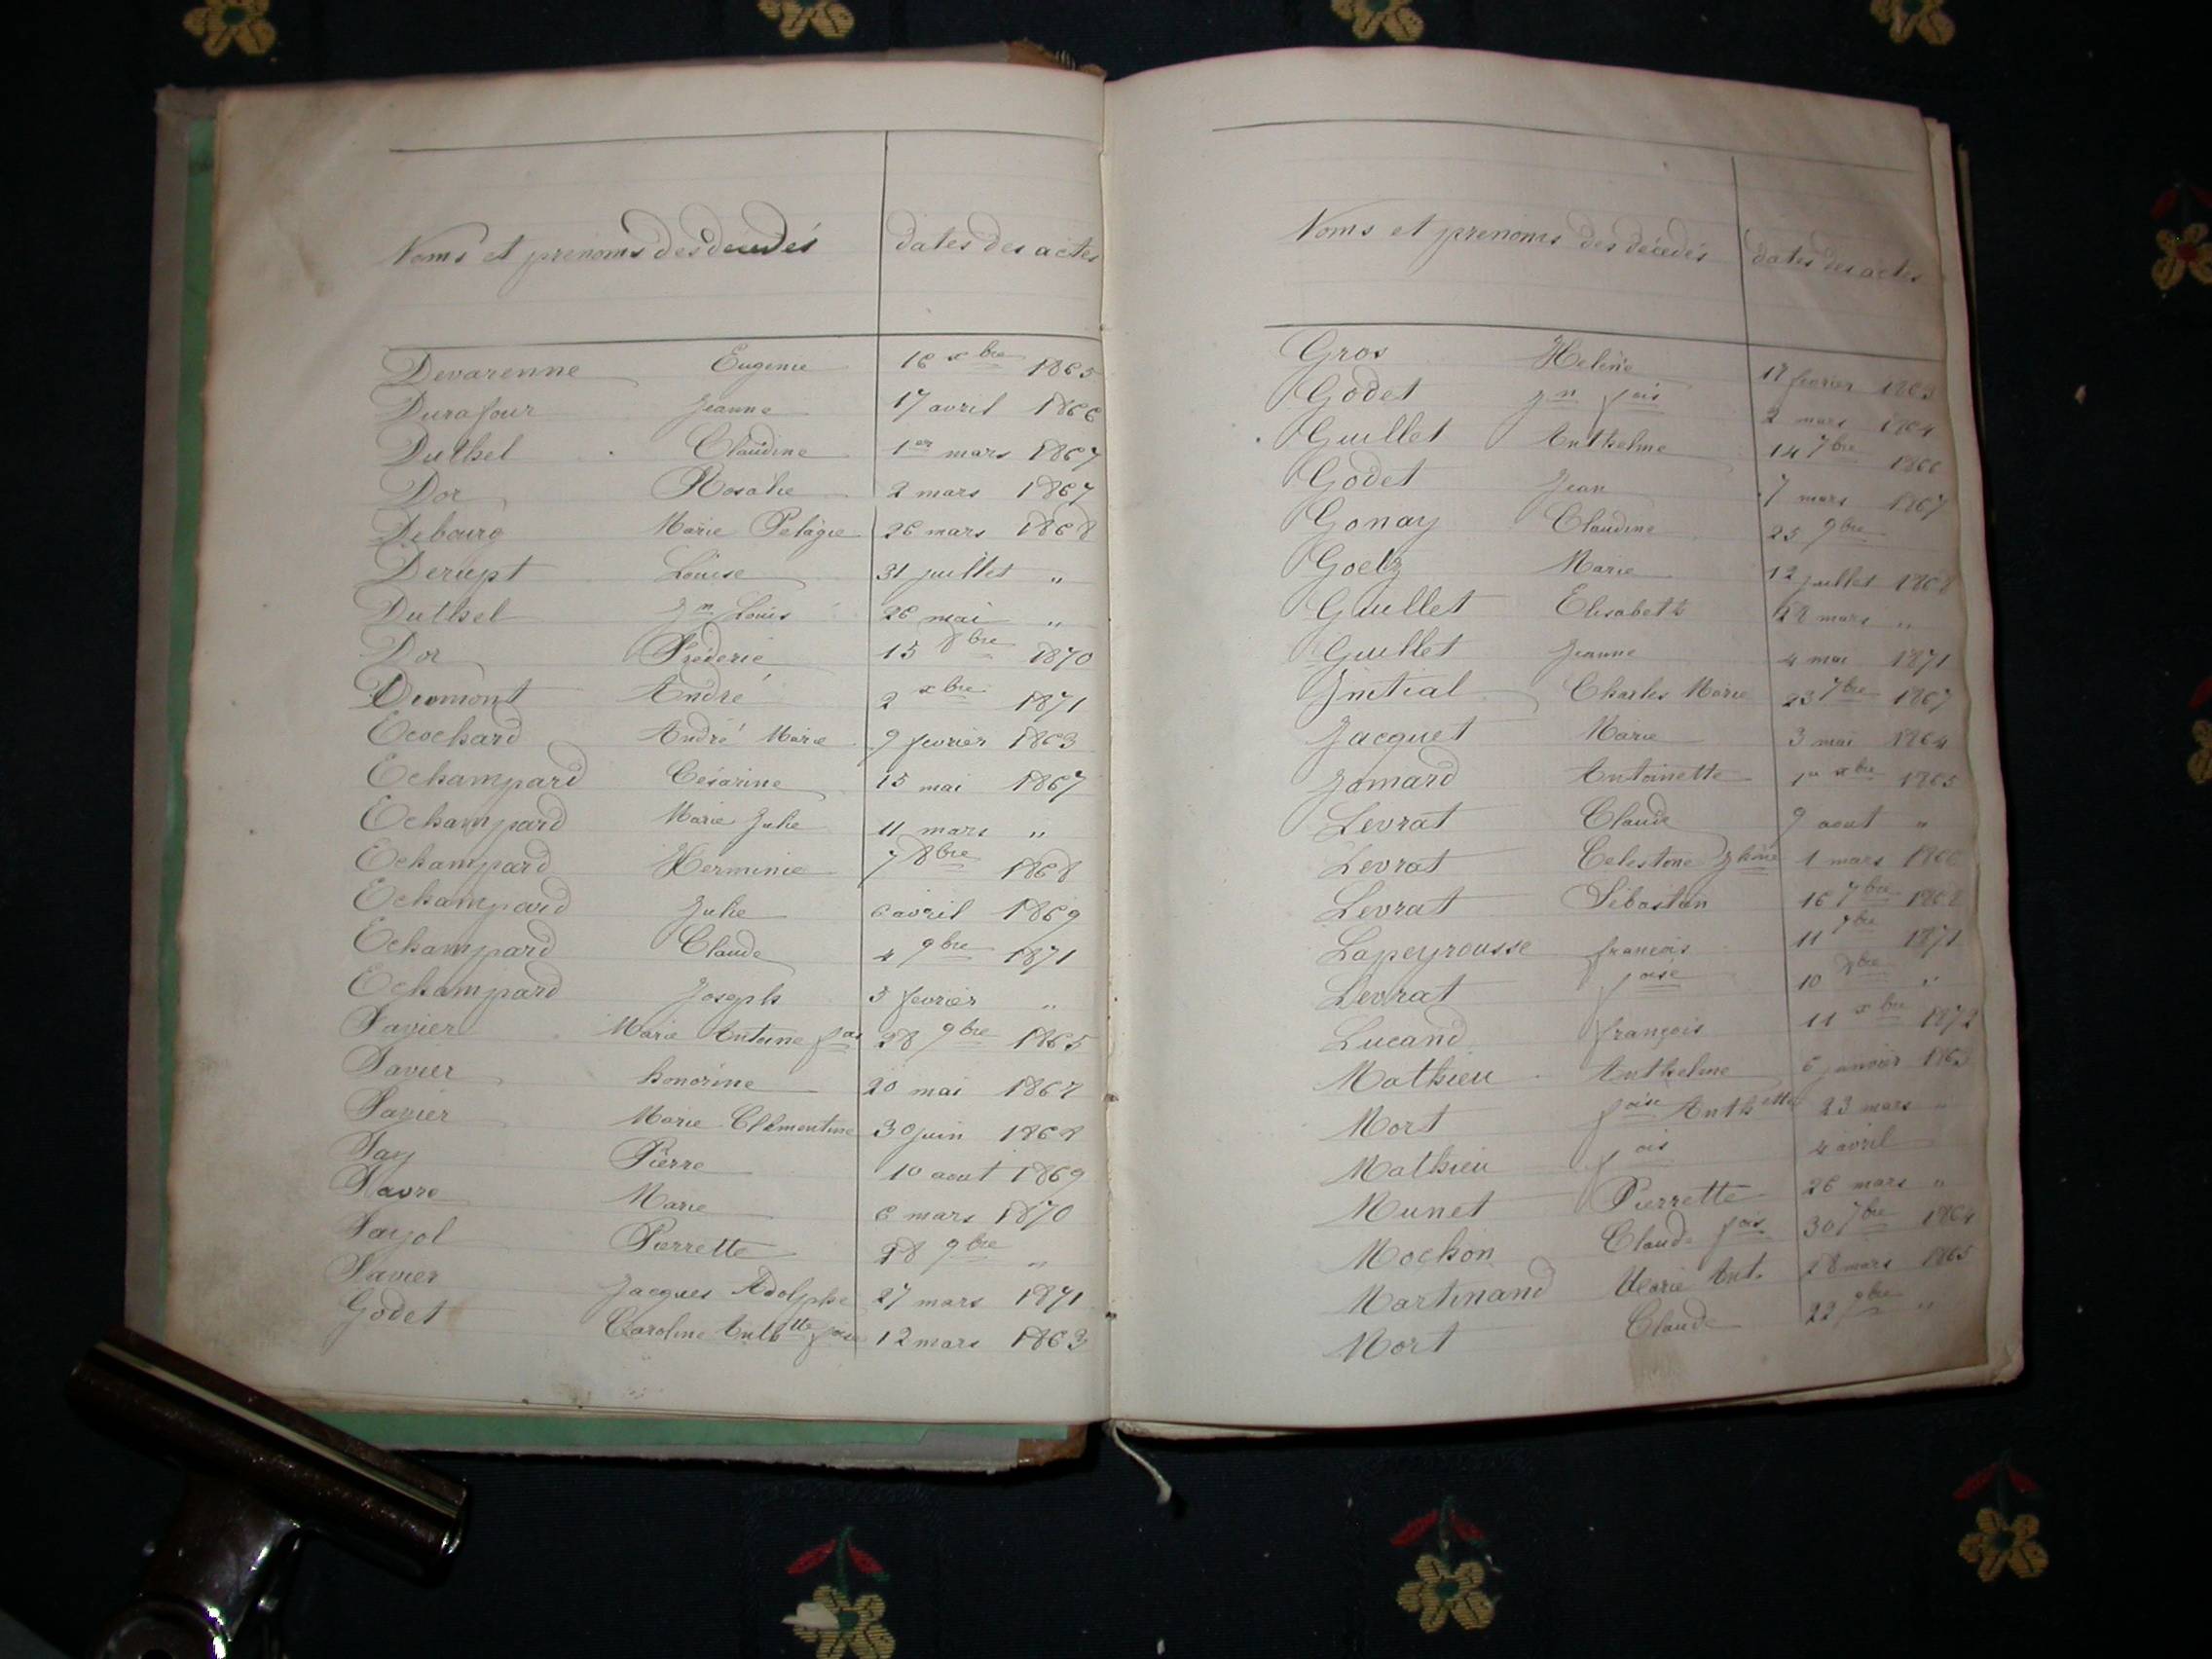 Noms et prenoms des décedés dates des actes
Devarenne Eugenie 16 xbre 1865
Durafour Jeanne 17 avril 1866
Duthel Claudine 1er mars 1867
Dor Rosalie 2 mars 1867
Debourg Marie Pelagie 26 mars 1868
Derupt Louise 31 juillet "
Duthel Jn Louis 26 mai "
Dor Fréderic 15 8bre 1870
Dumont André 2 xbre 1871
Ecochard André Marie 9 fevrier 1863
Echampard Césarine 15 mai 1867
Echampard Marie Julie 11 mars "
Echampard Herminie 7 8bre 1868
Echampard Julie 6 avril 1869
Echampard Claude 4 9bre 1871
Echampard Joseph 5 fevrier "
Favier Marie Antoine fois 28 9bre 1865
Favier honorine 20 mai 1867
Favier Marie Clémentine 30 juin 1868
Fay Pierre 10 aout 1869
Favre Marie 6 mars 1870
Fayol Pierrette 28 9bre "
Favier Jacques Adolphe 27 mars 1871
Godet Caroline Anthtte foise 12 mars 1863
Noms et prenoms des décedés dates des actes
Gros Heléne fevrier 1863
Godet Jn fois 2 mars 1864
Guillet Anthelme 14 7bre 1866
Godet Jean 7 mars 1867
Gonay Claudine 25 9bre
Goelz Marie 12 juillet 1868
Guillet Elisabeth 28 mars "
Guillet Jeanne 4 mai 1871
Initial Charles Marie 23 7bre 1867
Jacquet Marie 3 mai 1864
Jomard Antoinette 1er xbre 1865
Levrat Claude 9 aout "
Levrat Celestine Jphine 1 mars 1866
Levrat Sébastien 16 7bre 1868
Lapeyrousse françois 11 7bre 1871
Levrat foise 10 8bre "
Lucand françois 11 xbre 1872
Mathieu Anthelme 6 janvier 1863
Mort foise Anthette 23 mars "
Mathieu fois 4 avril "
Munet Pierrette 26 mars "
Mochon Claude fois 30 7bre 1864
Martinand Marie Ant. 28 mars 1865
Mort Claude 22 9bre "